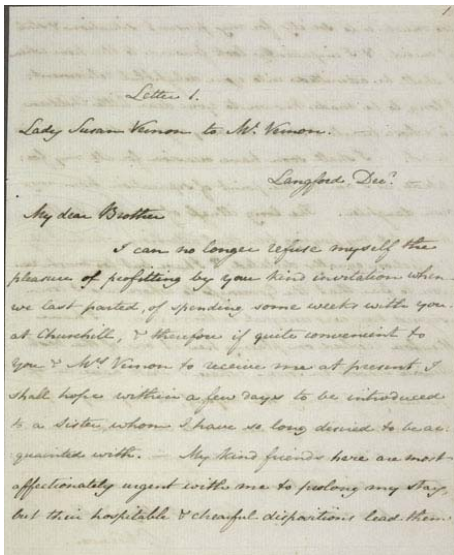 1
Letter 1.
Lady Susan Vernon to Mr. Vernon.
Langford Decr.
My dear Brother
I can no longer refuse myself the
pleasure of profitting by your kind invitation when
we last parted, of spending some weeks with you
at Churchill, & therefore if quite convenient to
you & Mrs. Vernon to receive me at present, I
shall hope within a few days to be introduced
to a Sister, whom I have so long desired to be ac:
:quainted with. — My kind friends here are most
affectionately urgent with me to prolong my stay,
but their hospitable & chearful dispositions lead them